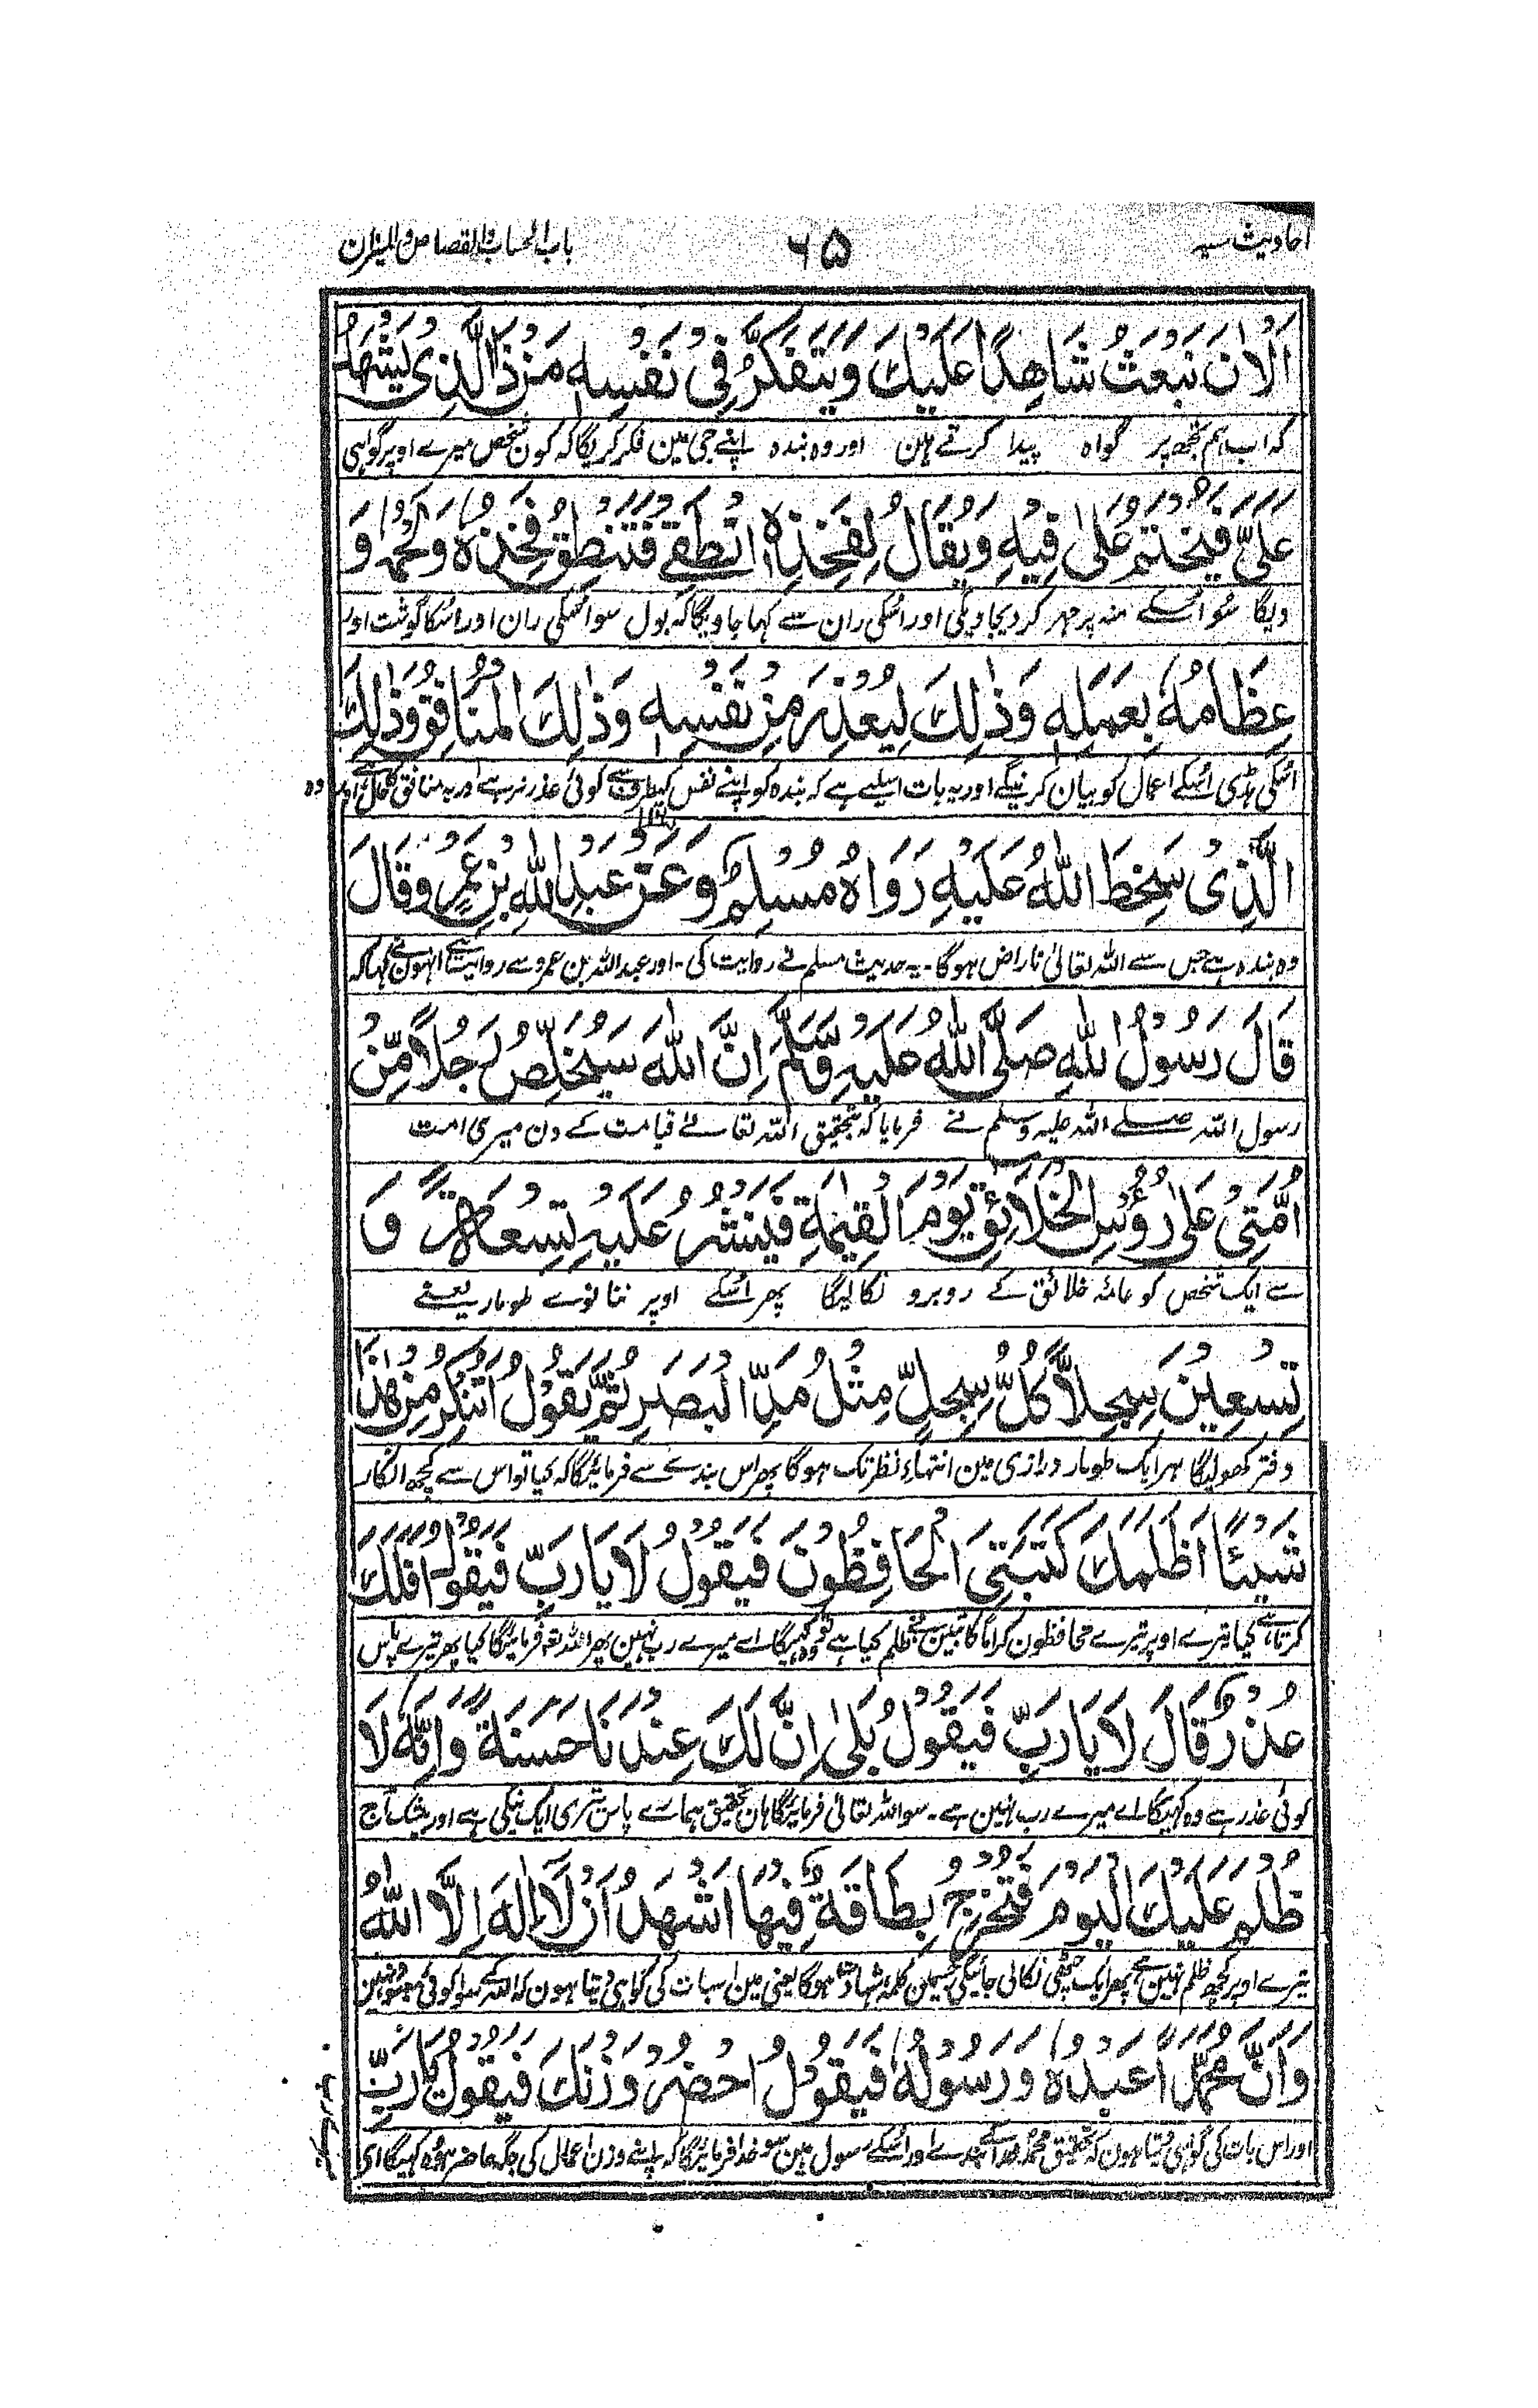 احادیث سیہ ۶۵ باب الحساب والقصاص والمیزان
اَلْاٰنَ نَبْعَثُ شَاهِدًا عَلَيْكَ وَيَتَفَكَّرُ فِيْ نَفْسِهٖ مَنْ ذَا الَّذِيْ يَشْهَدُ
کہ اب ہم تجھ پر گواہ پیدا کرتے ہین اور وہ بندہ اپنے جی مین فکر کریگا کہ کون شخص میرے اوپر گواہی
عَلَيَّ فَيُخْتَمُ عَلٰى فِيْهِ وَيُقَالُ لِفَخِذِهٖ انْطِقِيْ فَتَنْطِقُ فَخِذُهٗ وَلَحْمُهٗ وَ
دیگا سو اُسکے منہ پر مہر کر دیجاویگی اور اُسکی ران سے کہا جاویگا کہ بول سو اُسکی ران اور اُسکا گوشت اور
عِظَامُهٗ بِعَمَلِهٖ وَذٰلِكَ لِيُعْذِرَ مِنْ نَفْسِهٖ وَذٰلِكَ الْمُنَافِقُ وَذٰلِكَ
اُسکی ہڈی اُسکے اعمال کو بیان کرینگے اور یہ بات اسلیے ہے کہ بندہ کو اپنے نفس کیطرف سے کوئی عذر نرہے اور یہ منافق کا حال ہے اور وہ
الَّذِيْ سَخِطَ اللّٰهُ عَلَيْهِ رَوَاهُ مُسْلِمٌ وَعَنْ عَبْدِ اللّٰهِ بْنِ عَمْرٍو قَالَ
وہ بندہ ہے جس سے اللہ تعالیٰ ناراض ہوگا۔ یہ حدیث مسلم نے روایت کی۔ اور عبد اللہ بن عمرو سے روایت ہے انہون نے کہا کہ
قَالَ رَسُوْلُ اللّٰهِ صَلَّى اللّٰهُ عَلَيْهِ وَسَلَّمَ اِنَّ اللّٰهَ سَيُخَلِّصُ رَجُلًا مِّنْ
رسول اللہ صلے اللہ علیہ وسلم نے فرمایا کہ بتحقیق اللہ تعالےٰ قیامت کے دن میری امت
اُمَّتِيْ عَلٰى رُءُوْسِ الْخَلَائِقِ يَوْمَ الْقِيٰمَةِ فَيَنْشُرُ عَلَيْهِ تِسْعَةً وَ
سے ایک شخص کو عامہ خلائق کے روبرو نکالیگا پھر اُسکے اوپر ننانوے طومار یعنے
تِسْعِيْنَ سِجِلًّا كُلُّ سِجِلٍّ مِثْلُ مَدِّ الْبَصَرِ ثُمَّ يَقُوْلُ اَتُنْكِرُ مِنْ هٰذَا
دفتر کھولیگا ہر ایک طومار درازی مین انتہاء نظر تک ہوگا پھر اس بندے سے فرمائیگا کہ کیا تو اس سے کچھ انکار
شَيْئًا اَظَلَمَكَ كَتَبَتِيَ الْحَافِظُوْنَ فَيَقُوْلُ لَا يَارَبِّ فَيَقُوْلُ اَفَلَكَ
کرتا ہے کیا تیرے اوپر تیرے محافظون کراماً کاتبین نے کچھ ظلم کیا ہے تو وہ کہیگا اے میرے رب نہین پھر اللہ تعہ فرمائیگا کیا پھر تیرے پاس
عُذْرٌ قَالَ لَا يَارَبِّ فَيَقُوْلُ بَلٰى اِنَّ لَكَ عِنْدَنَا حَسَنَةً وَّاِنَّهٗ لَا
کوئی عذر ہے وہ کہیگا اے میرے رب نہین ہے۔ سو اللہ تعالیٰ فرمائیگا ہان تحقیق ہمارے پاس تیری ایک نیکی ہے اور بیشک آج
ظُلْمَ عَلَيْكَ الْيَوْمَ فَتُخْرَجُ بِطَاقَةٌ فِيْهَا اَشْهَدُ اَنْ لَّا اِلٰهَ اِلَّا اللّٰهُ
تیرے اوپر کچھ ظلم نہین ہے پھر ایک چٹھی نکالی جائیگی جسمین کلمہ شہادت ہوگا یعنی مین اسبات کی گواہی دیتا ہون کہ اللہ کے سوا کوئی معبود نہین
وَاَنَّ مُحَمَّدًا عَبْدُهٗ وَرَسُوْلُهٗ فَيَقُوْلُ احْضُرْ وَزْنَكَ فَيَقُوْلُ يَارَبِّ
اور اس بات کی گواہی دیتا ہون کہ تحقیق محمدؐ خدا کے بندے اور اُسکے رسول ہین سو خدا فرمائیگا کہ اپنے وزن اعمال کی جگہ حاضر ہو وہ کہیگا ای